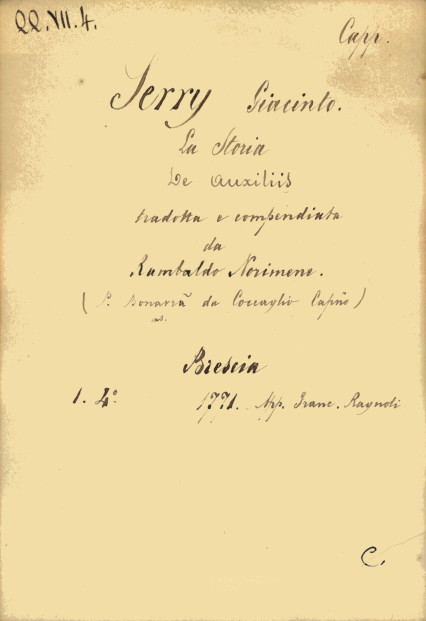 QQ.VII.4.
Capp.
Serry Giacinto.
La Storia
De auxiliis
tradotta e compendiata
da
Rambaldo Norimene.
( P. Bonavrã da Coccaglio Capño )
Brescia
1. 4º 1771. App. Franc. Ragnoli
C.